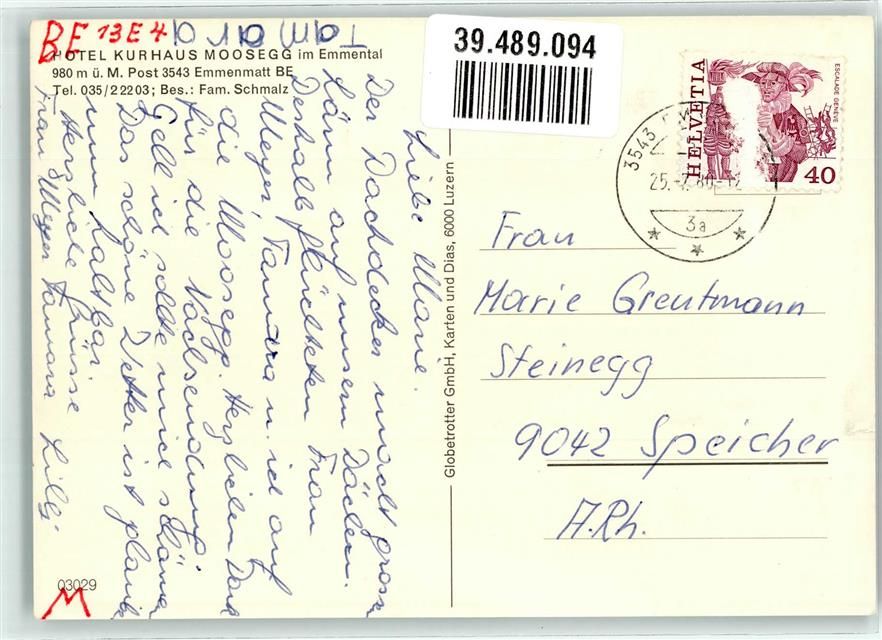 BE 13E4
Tamara
HOTEL KURHAUS MOOSEGG im Emmental
980 m ü. M. Post 3543 Emmenmatt BE
Tel. 035/2 22 03; Bes.: Fam. Schmalz
Liebe Marie.
Der Dachdecker macht gross
Lärm auf unsern Dächern.
Deshalb flüchteten Frau
Meyer, Tamara u. ich auf
die Moosegg. Herzlichen Dank
für die Nachsendung.
Gell ich sollte mich schämen
Das schöne Wetter ist glaub
nun haltbar.
Herzliche Grüsse
Frau Meyer Tamara Lilli
03029
M
Globetrotter GmbH, Karten und Dias, 6000 Luzern
39.489.094
HELVETIA
ESCALADE GENÈVE
40
3543
25.-7.80-12
3a
Frau
Marie Greutmann
Steinegg
9042 Speicher
A.Rh.